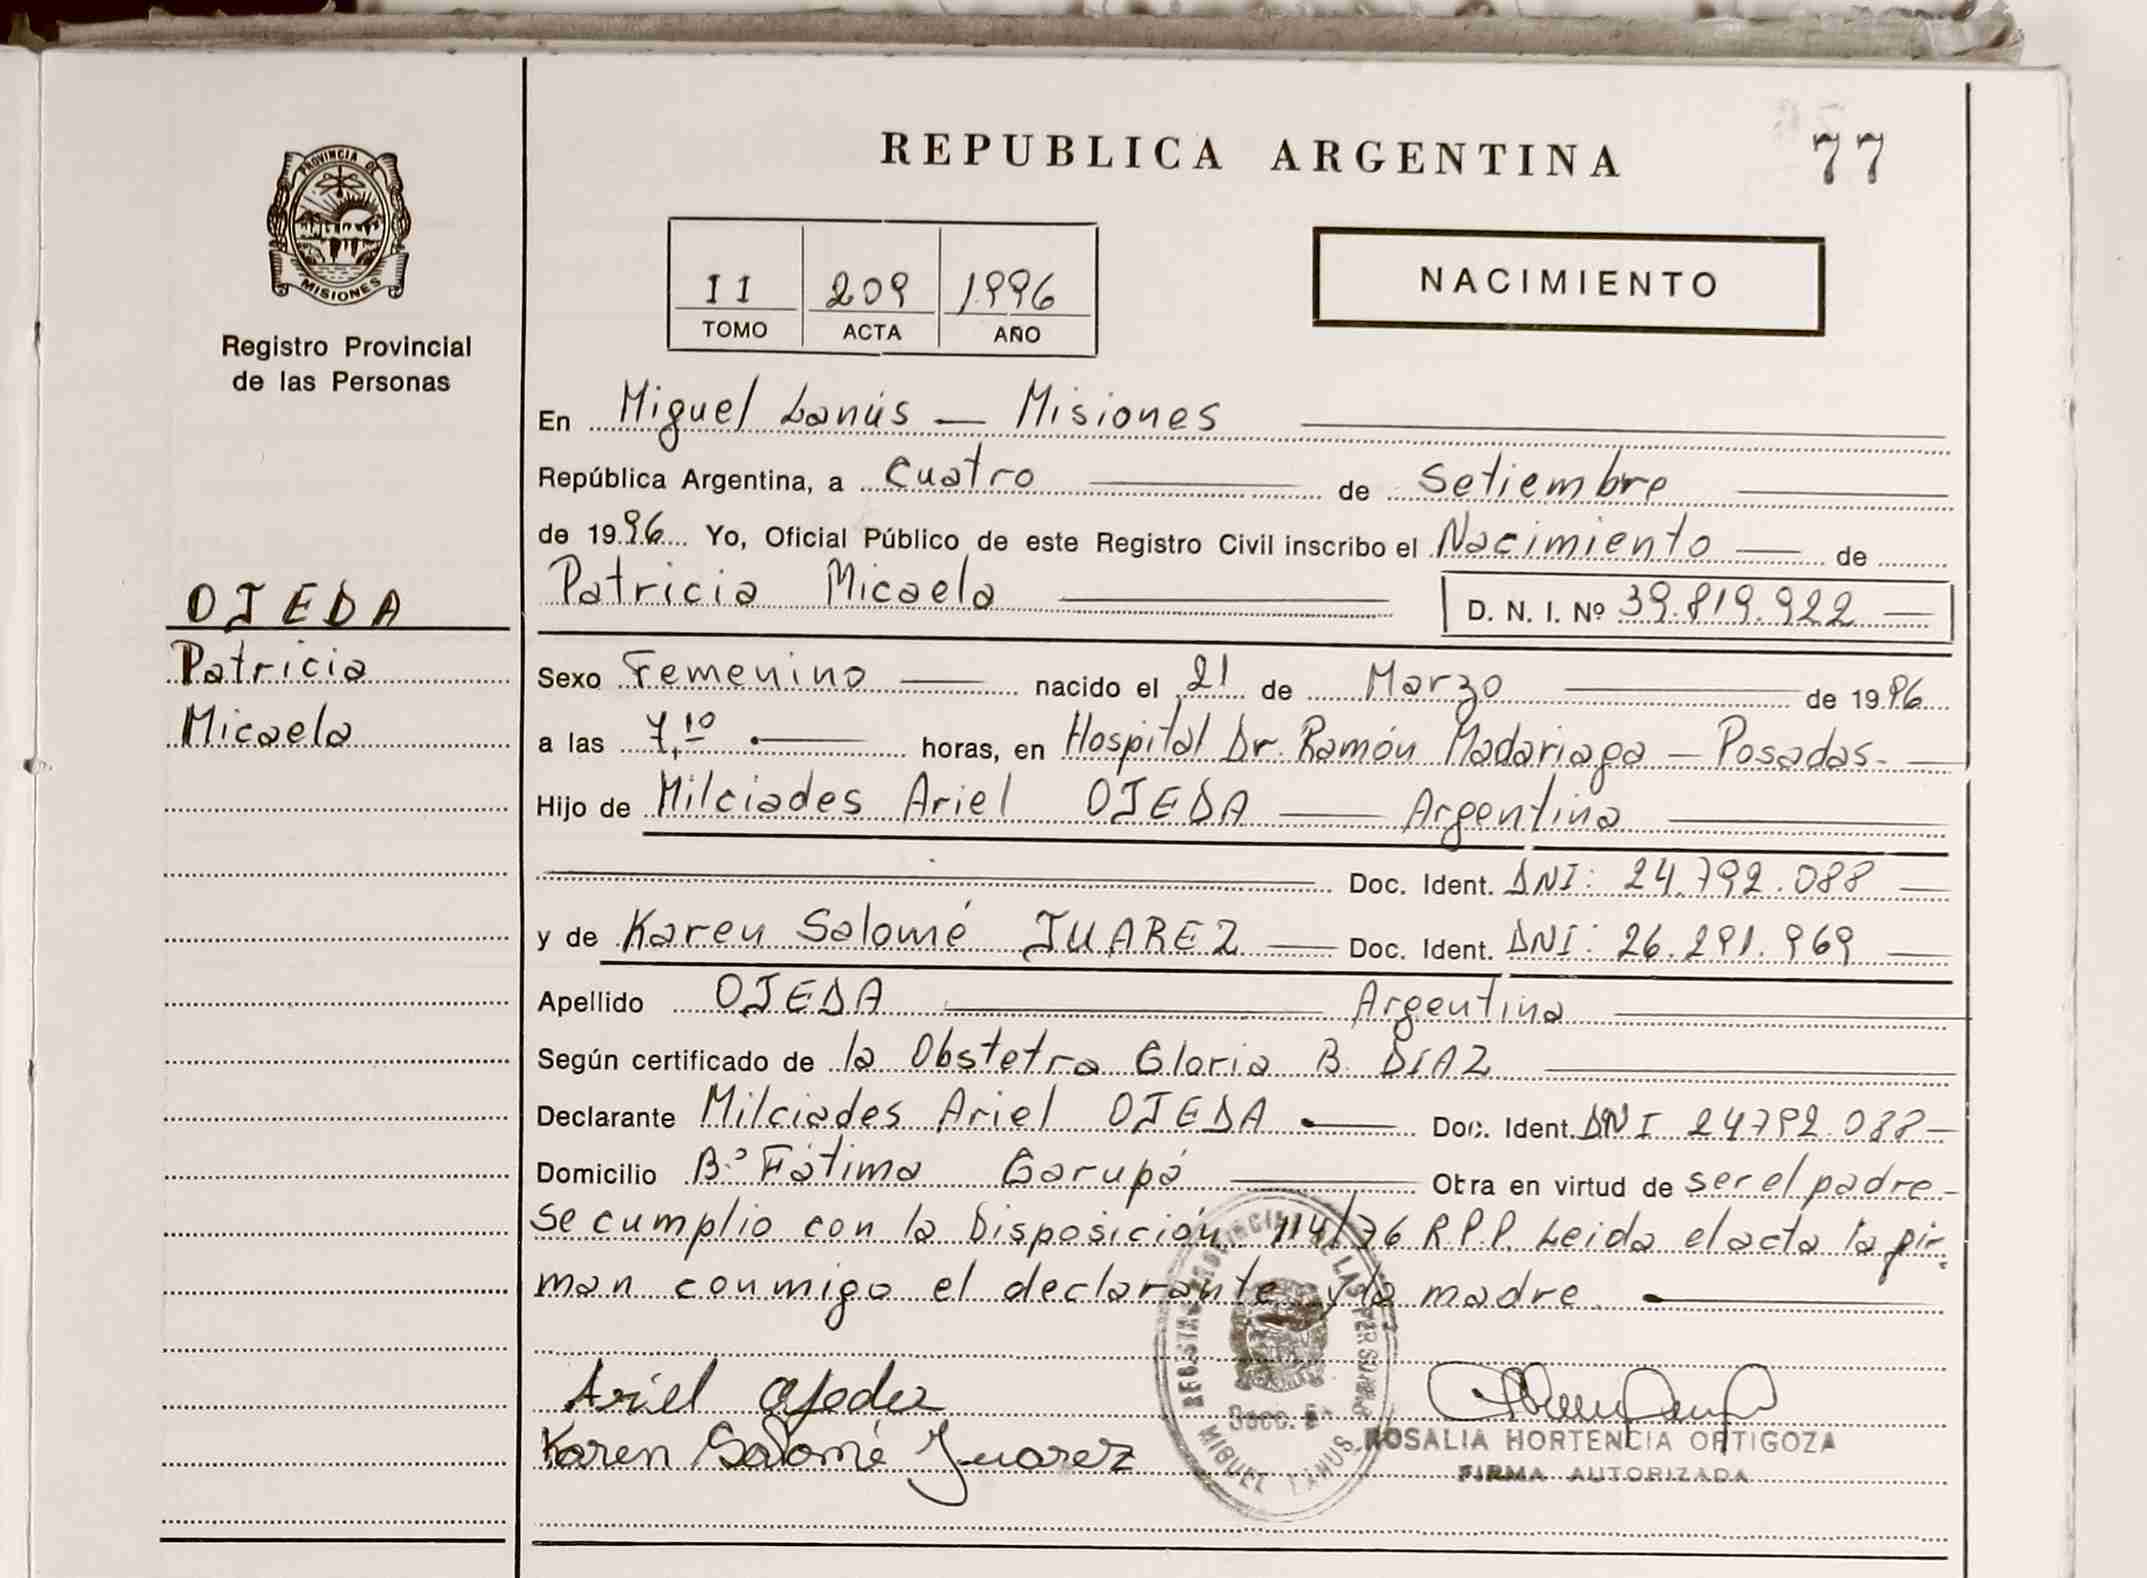 PROVINCIA DE
MISIONES
Registro Provincial
de las Personas
OJEDA
Patricia
Micaela
REPUBLICA ARGENTINA
77
II 209 1996
TOMO ACTA AÑO
NACIMIENTO
En Miguel Lanús — Misiones
República Argentina, a Cuatro de Setiembre
de 1996 Yo, Oficial Público de este Registro Civil inscribo el Nacimiento — de
Patricia Micaela D. N. I. Nº 39.819.922
Sexo Femenino nacido el 21 de Marzo de 1996
a las 7,10 horas, en Hospital Dr. Ramón Madariaga — Posadas.
Hijo de Milciades Ariel OJEDA — Argentina
Doc. Ident. DNI: 24.792.088
y de Karen Salomé JUAREZ — Doc. Ident. DNI: 26.291.969
Apellido OJEDA Argentina
Según certificado de la Obstetra Gloria B. DIAZ
Declarante Milciades Ariel OJEDA Doc. Ident. DNI 24792.088
Domicilio Bº Fátima Garupá Obra en virtud de ser el padre
Se cumplio con la Disposición 114/76 R.P.P. Leida el acta la fir-
man conmigo el declarante y la madre.
Ariel Ojeda
Karen Salomé Juarez
REGISTRO PROVINCIAL DE LAS PERSONAS
MIGUEL LANUS
ROSALIA HORTENCIA ORTIGOZA
FIRMA AUTORIZADA